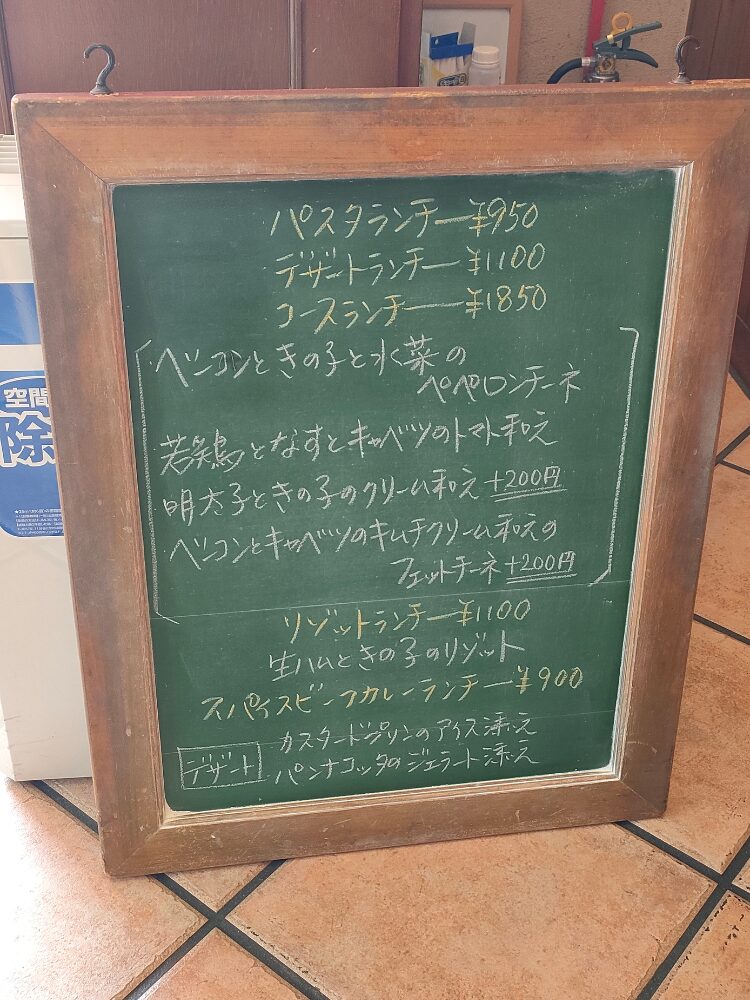 パスタランチー¥950
デザートランチー¥1100
コースランチー¥1850
ベーコンときの子と水菜の
ペペロンチーネ
若鶏となすとキャベツのトマト和え
明太子ときの子のクリーム和え+200円
ベーコンとキャベツのキムチクリーム和えの
フェットチーネ+200円
リゾットランチー¥1100
生ハムときの子のリゾット
スパイスビーフカレーランチー¥900
デザート
カスタードプリンのアイス添え
パンナコッタのジェラート添え
空間
除